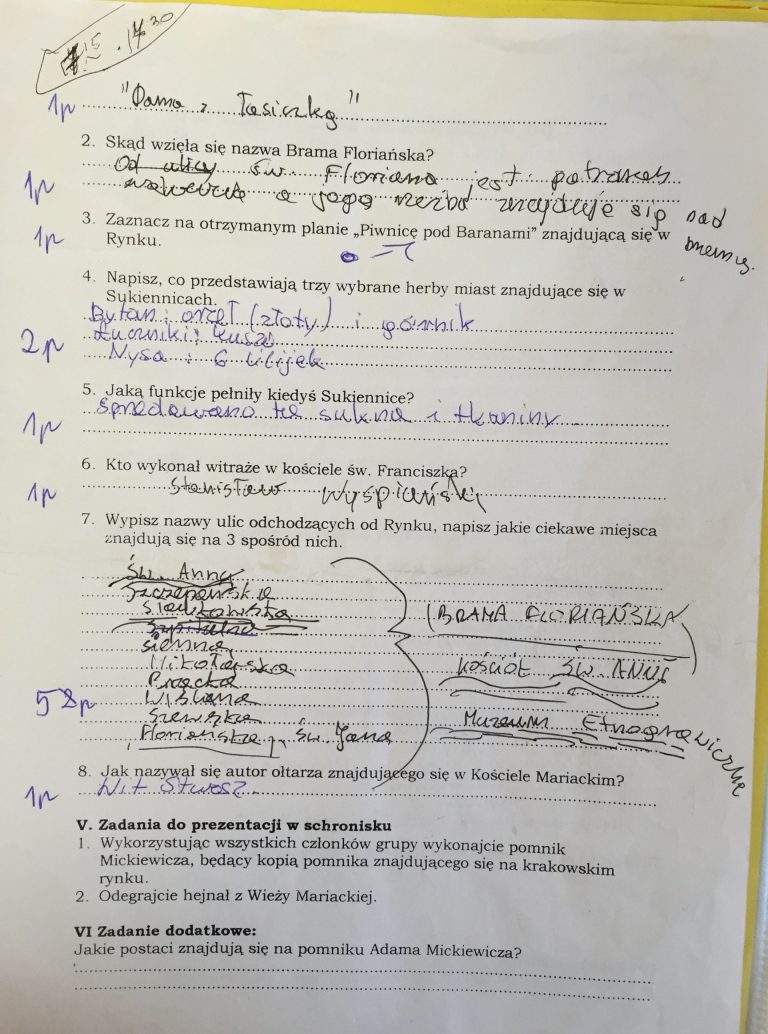 15 . 17 30
1p "Dama z Łasiczką"
2. Skąd wzięła się nazwa Brama Floriańska?
Od ulicy św. Floriana jest patronem
1p a jego rzeźba znajduje się nad
bramą.
3. Zaznacz na otrzymanym planie „Piwnicę pod Baranami” znajdującą się w
1p Rynku.
4. Napisz, co przedstawiają trzy wybrane herby miast znajdujące się w
Sukiennicach.
Bytom: orzeł (złoty) i górnik
Łuczniki: kusza
2p Nysa: 6 lilijek
5. Jaką funkcje pełniły kiedyś Sukiennice?
Sprzedawano te sukna i tkaniny
1p
6. Kto wykonał witraże w kościele św. Franciszka?
1p Stanisław Wyspiański
7. Wypisz nazwy ulic odchodzących od Rynku, napisz jakie ciekawe miejsca
znajdują się na 3 spośród nich.
Św. Anny
Szczepańska
Sławkowska BRAMA FLORIAŃSKA
Szpitalna
Sienna
Mikołajska KOŚCIÓŁ ŚW. ANNY
Bracka
5 p Wiślana
Szewska Muzeum Etnograwiczne
Floriańska, św. Jana
8. Jak nazywał się autor ołtarza znajdującego się w Kościele Mariackim?
1p Wit Stwosz
V. Zadania do prezentacji w schronisku
1. Wykorzystując wszystkich członków grupy wykonajcie pomnik
Mickiewicza, będący kopią pomnika znajdującego się na krakowskim
rynku.
2. Odegrajcie hejnał z Wieży Mariackiej.
VI Zadanie dodatkowe:
Jakie postaci znajdują się na pomniku Adama Mickiewicza?